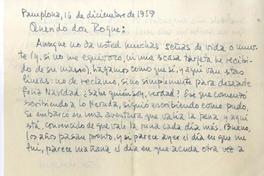 Pamplona, 16 de diciembre de 1959
Querido don Roque:
Aunque no da usted muchas señas de vida o muer-
te (y, si no me equivoco, ni una sola tarjeta he reci-
bido de su mano), hagamos como que sí, y aquí van estas
líneas: no de reclamo, si no simplemente para desearle
feliz Navidad. ¿Sabe quién soy, verdad? Ese que comenzó
escribiendo a lo Neruda, siguió escribiendo como pudo,
se embarcó en una aventura que valía la pena y aquí
está, convencido de que vale la pena cada día más. Bueno,
los años pasan pronto, y si parece ayer el día en que me
fui, parece mañana el día en que acuda otra vez a